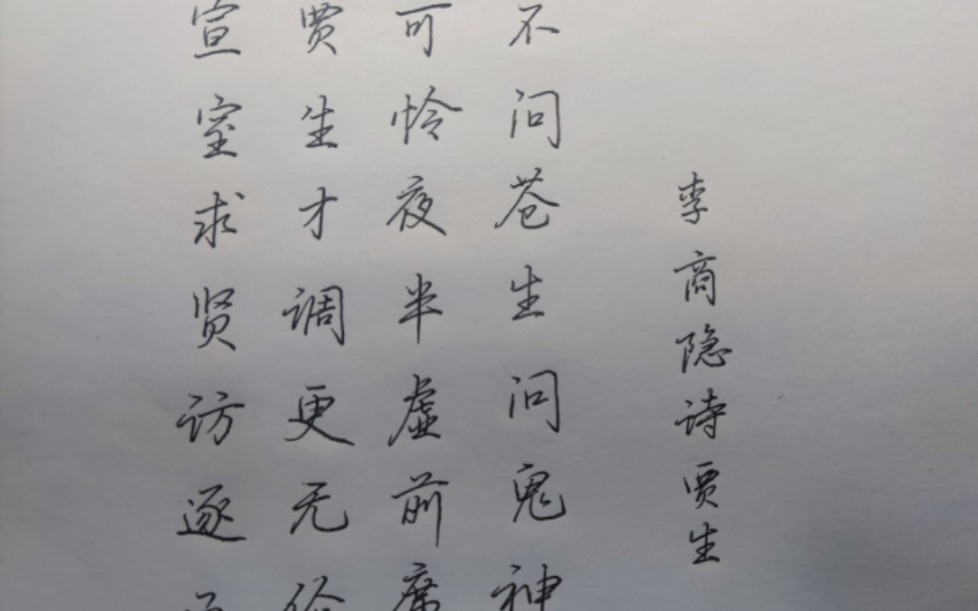 宣室求贤访逐
贾生才调更无
可怜夜半虚前席
不问苍生问鬼神
李商隐诗贾生